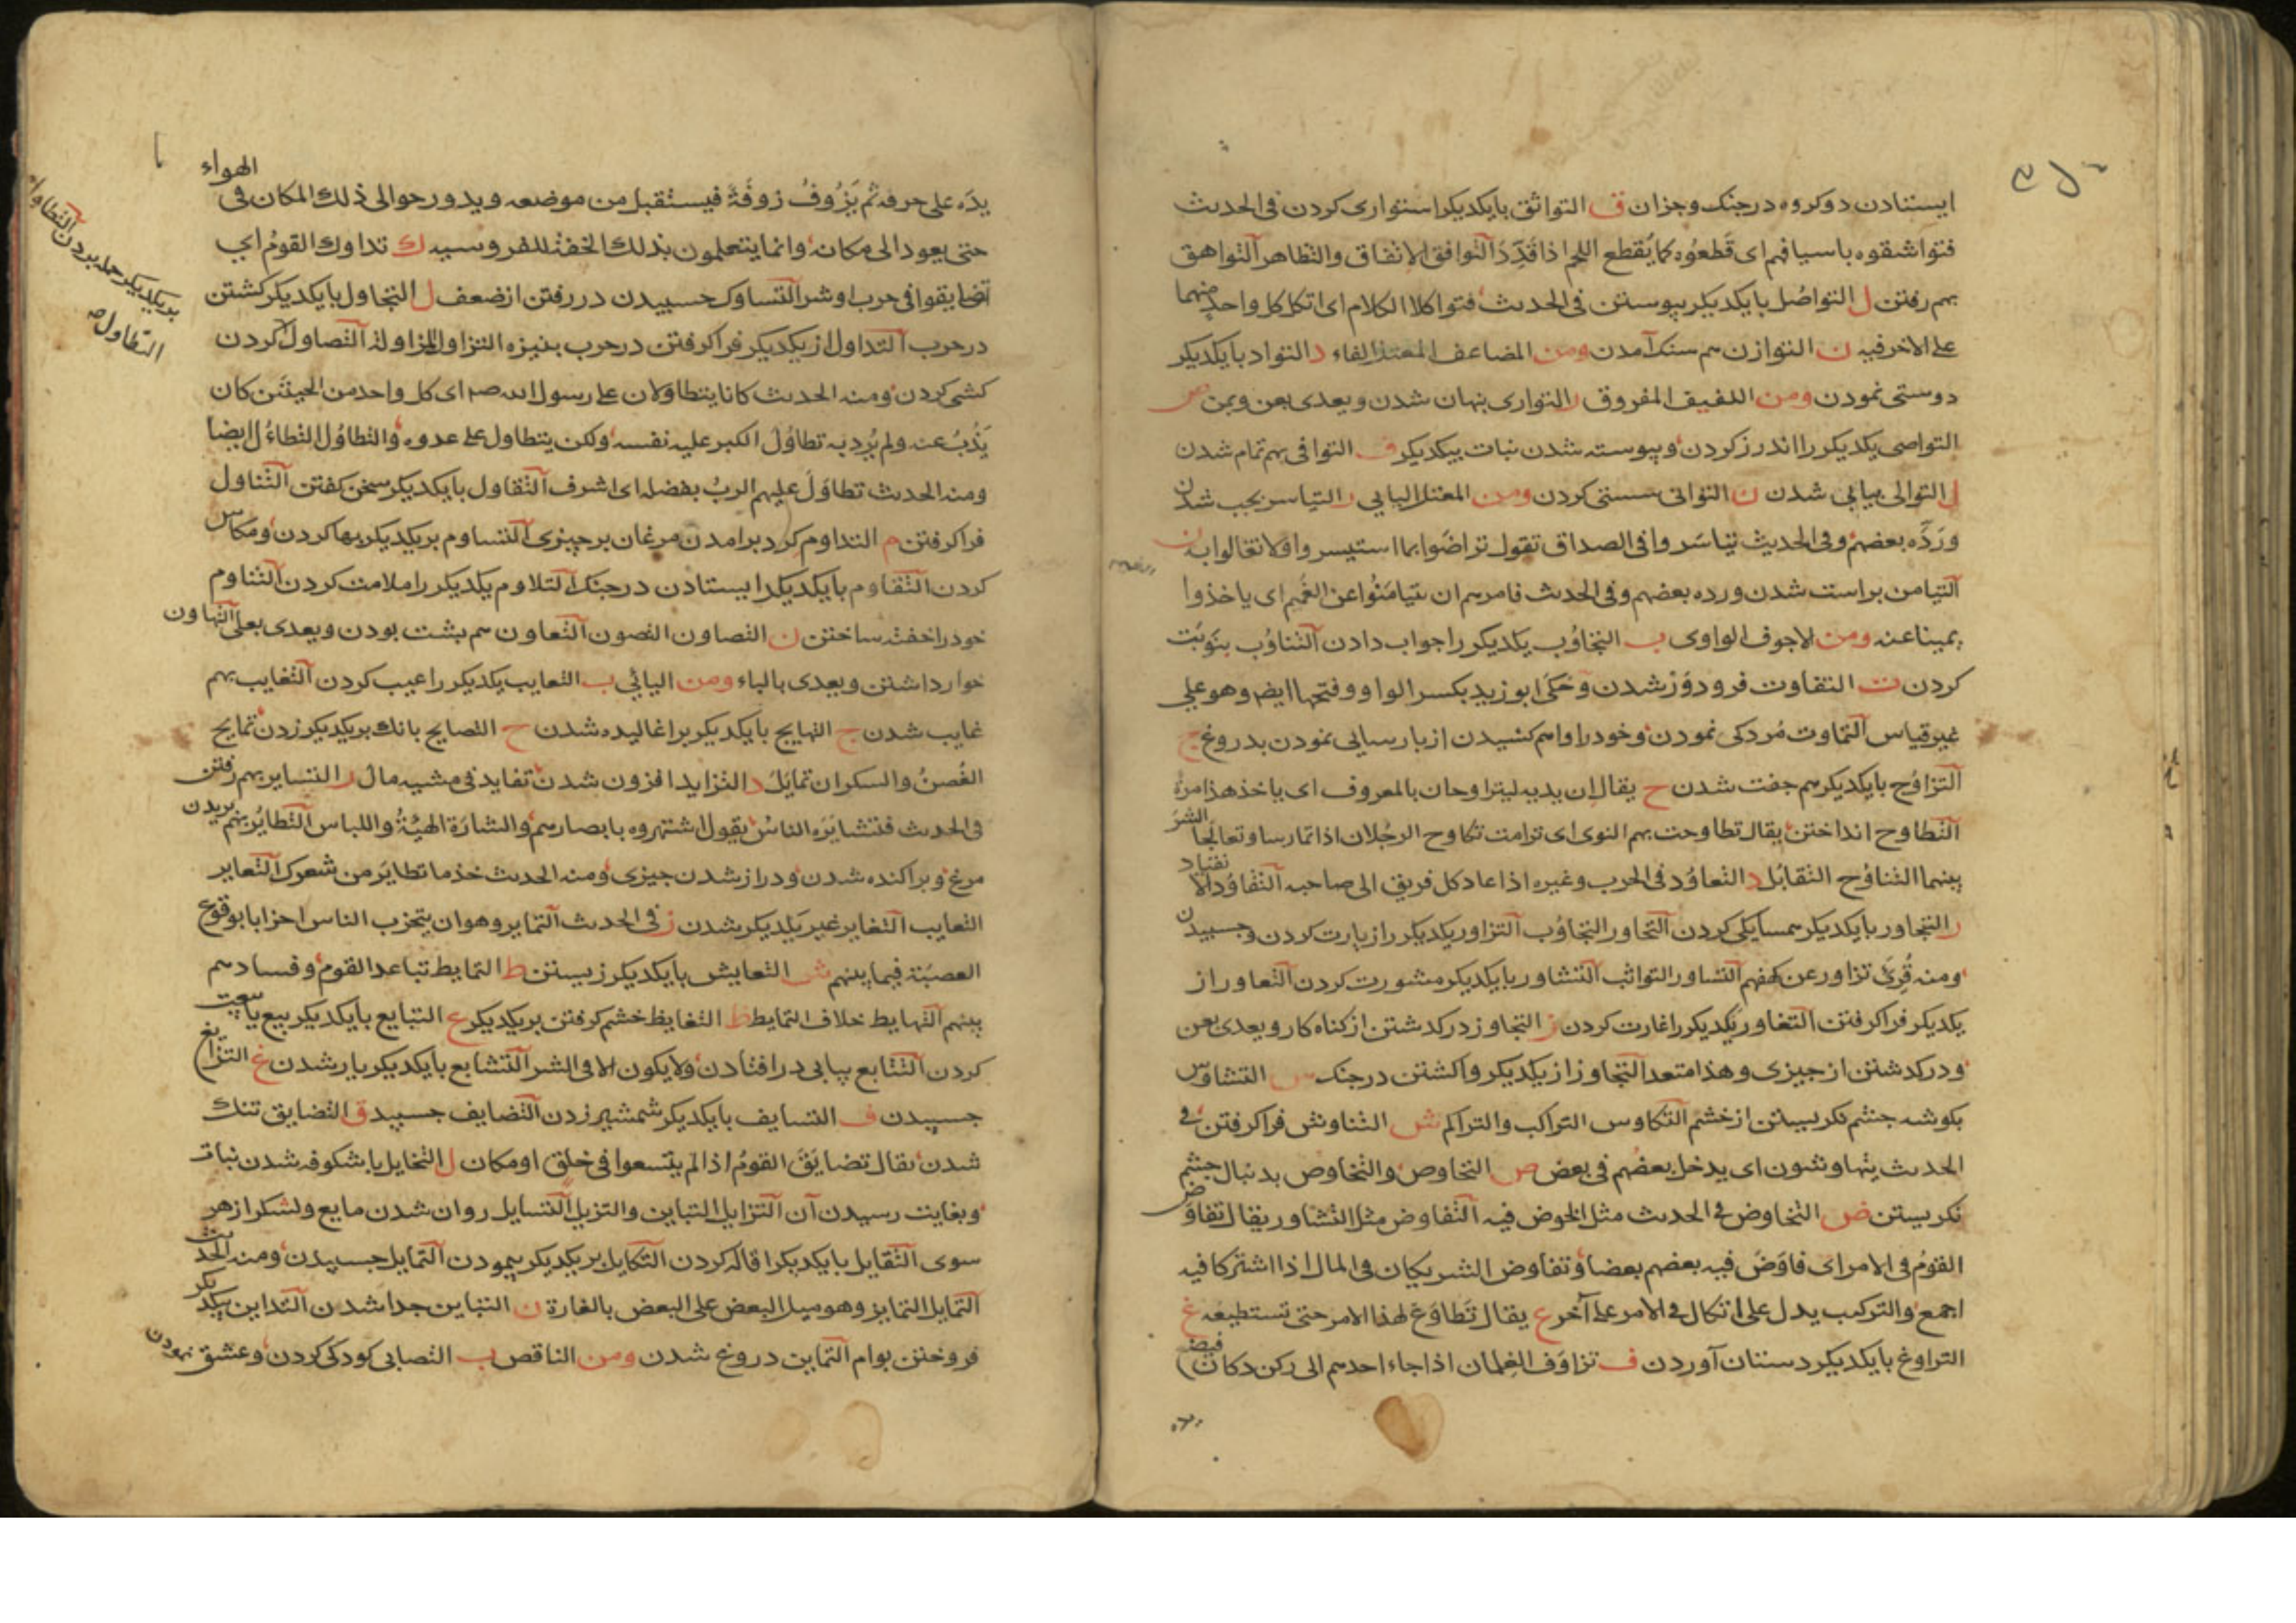 ایستادن دو کروه در جنک و جزان ف التواثق بایکدیکر استواری کردن فی الحدیث
فتواشقوه باسیافهم ای قَطعُوه کما یُقطع اللحم اذا قُدِّدَ التوافق الاتفاق والتظاهر التواهق
بهم رفتن ل التواصُل بایکدیکر پیوستن فی الحدیث فتواکلا الکلام ای اتکل کل واحد منهما
علی الاخر فیه ن التوازن هم سنک آمدن ومن المضاعف المعتل الفاء د التواد بایکدیکر
دوستی نمودن ومن اللفیف المفروق ر التواری پنهان شدن ویعدی بعن وبمن ص
التواصی یکدیکر را اندرز کردن وپیوسته شدن نبات بیکدیکر ف التوافی بهم تمام شدن
ل التوالی پیاپی شدن ن التوانی سستی کردن ومن المعتل الیایی ر التیاسر بجپ شدن
ورَدَّه بعضهم وفی الحدیث تیاسَروا فی الصداق تقول تراضَوا بما استیسر ولا تغالوا به ن
التیامن براست شدن ورده بعضهم وفی الحدیث فامرهم ان یتیامَنُوا عن الغَمیم ای یاخذوا
یمینا عنه ومن الاجوف الواوی ب التجاوُب یکدیکر را جواب دادن التناوُب بنوبَت
کردن ت التفاوت فرود وَز شدن وحَکَی ابو زید بکسر الواو وفتحها ایض وهو علی
غیر قیاس التماوت مُردکی نمودن وخود را واهم کشیدن از پارسایی نمودن بدروغ ج
التزاوُج بایکدیکر هم جفت شدن ح یقال ان یدیه لیتراوحان بالمعروف ای یاخذ هذا مرة
التطاوح انداختن یقال تطاوحت بهم النوی ای ترامت تکاوح الرجُلان اذا تمارسا وتعالجا الشر
بینهما التناوُح التقابُل د التعاوُد فی الحرب وغیره اذا عاد کل فریق الی صاحبه التقاوُد الانقیاد
ر التجاور بایکدیکر همسایکی کردن التحاور التجاوُب التزاور یکدیکر را زیارت کردن وجسبیدن
ومنه قُرِئَ تزاور عن کهفهم التساور التواثب التشاور بایکدیکر مشورت کردن التعاور از
یکدیکر فرا کرفتن التغاور یکدیکر را غارت کردن ز التجاوز در کدشتن از کناه کار ویعدی بعن
ودر کدشتن از جیزی وهذا متعد التجاوز از یکدیکر واکشتن در جنک س التشاوس
بکوشه جشم نکریستن از خشم التکاوس التراکب والتراکم ش التناوش فرا کرفتن فی
الحدیث یتهاوشون ای یدخل بعضهم فی بعض ص التحاوص والتخاوص بدنبال جشم
نکریستن ض التخاوض فی الحدیث مثل الخوض فیه التفاوض مثل التشاور یقال تفاوض
القومُ فی الامر ای فاوَضَ فیه بعضهم بعضا وتفاوض الشریکان فی المال اذا اشترکا فیه
اجمع والترکیب یدل علی اتکال فی الامر علی آخر ع یقال تَطاوَع لهذا الامر حتی تستطیعه غ
التراوغ بایکدیکر دستان آوردن ف تزاوَف الغِلمان اذا جاء احدهم الی رکن دکان فیضع
یده
یدَه علی حرفه ثم یَزُوفُ زوفَةً فیستقبل من موضعه ویدور حوالی ذلک المکان فی الهواء
حتی یعود الی مکانه وانما یتعلمون بذلک الخفة للفروسیه ک تداوک القومُ ای
تضایقوا فی حرب او شر التساوک جسبیدن در رفتن از ضعف ل التجاول بایکدیکر کشتن
در حرب التداول از یکدیکر فرا کرفتن در حرب بنیزه التزاول المزاولة التصاول کردن
کشی کردن ومنه الحدیث کانا یتطاولان علی رسول الله صم ای کل واحد من الحیین کان
یَذُبُ عنه ولم یُرِد به تطاوُلَ الکبر علیه نفسه ولکن یتطاول علی عدوه والتطاوُل التطاءُل ایضا
ومنه الحدیث تطاوَلَ علیهم الربُ بفضله ای اشرف التقاول بایکدیکر سخن کفتن التناول
فرا کرفتن م التداوم کرد برامدن مرغان بر جیزی التساوم بر یکدیکر بها کردن ومکاس
کردن التقاوم بایکدیکر ایستادن در جنک التلاوم یکدیکر را ملامت کردن التناوم
خود را خفته ساختن ن التصاون التصون التعاون هم پشت بودن ویعدی بعلی التهاون
خوار داشتن ویعدی بالباء ومن الیائی ب التعایب یکدیکر را عیب کردن التغایب بهم
غایب شدن ج التهایج بایکدیکر بر اغالیده شدن ح التصایح بانک بر یکدیکر زدن تمایح
الغُصنُ والسکران تمایَلَ د التزاید افزون شدن تفاید فی مشیه مال ر التسایر بهم رفتن
فی الحدیث فتشایَرَه الناسُ یقول اشتهروه بابصارهم والشارَة الهیئةُ واللباس التطایُر بهم پریدن
مرغ وپراکنده شدن ودراز شدن جیزی ومنه الحدیث خذ ما تطایَر من شعرک التعایر
التعایب التغایر غیر یکدیکر شدن ز فی الحدیث التمایز وهو ان یتحزب الناس احزابا بوقوع
العصبیّة فیما بینهم ش التعایش بایکدیکر زیستن ط التمایط تباعد القوم وفساد هم
بینهم التهایط خلاف التمایط ظ التغایظ خشم کرفتن بر یکدیکر ع التبایع بایکدیکر بیع یا بیعت
کردن التتابع پیاپی در افتادن ولا یکون الا فی الشر التشایع بایکدیکر یار شدن غ التزایغ
جسبیدن ف التسایف بایکدیکر شمشیر زدن التضایف جسبید ق التضایق تنک
شدن یقال تضایَقَ القومُ اذا لم یتسعوا فی خلق او مکان ل التخایل با شکوفه شدن نبات
وبغایت رسیدن آن التزایل التباین والتزیل التسایل روان شدن مایع ولشکر از هر
سوی التقایل بایکدیکر اقاله کردن التکایل بر یکدیکر پیمودن التمایل جسبیدن ومنه الحدیث
التمایل التمایز وهو میل البعض علی البعض بالغارة ن التباین جدا شدن التداین بیکدیکر
فروختن بوام التماین دروغ شدن ومن الناقص ب التصابی کودکی کردن وعشق نمودن
التطاول ص